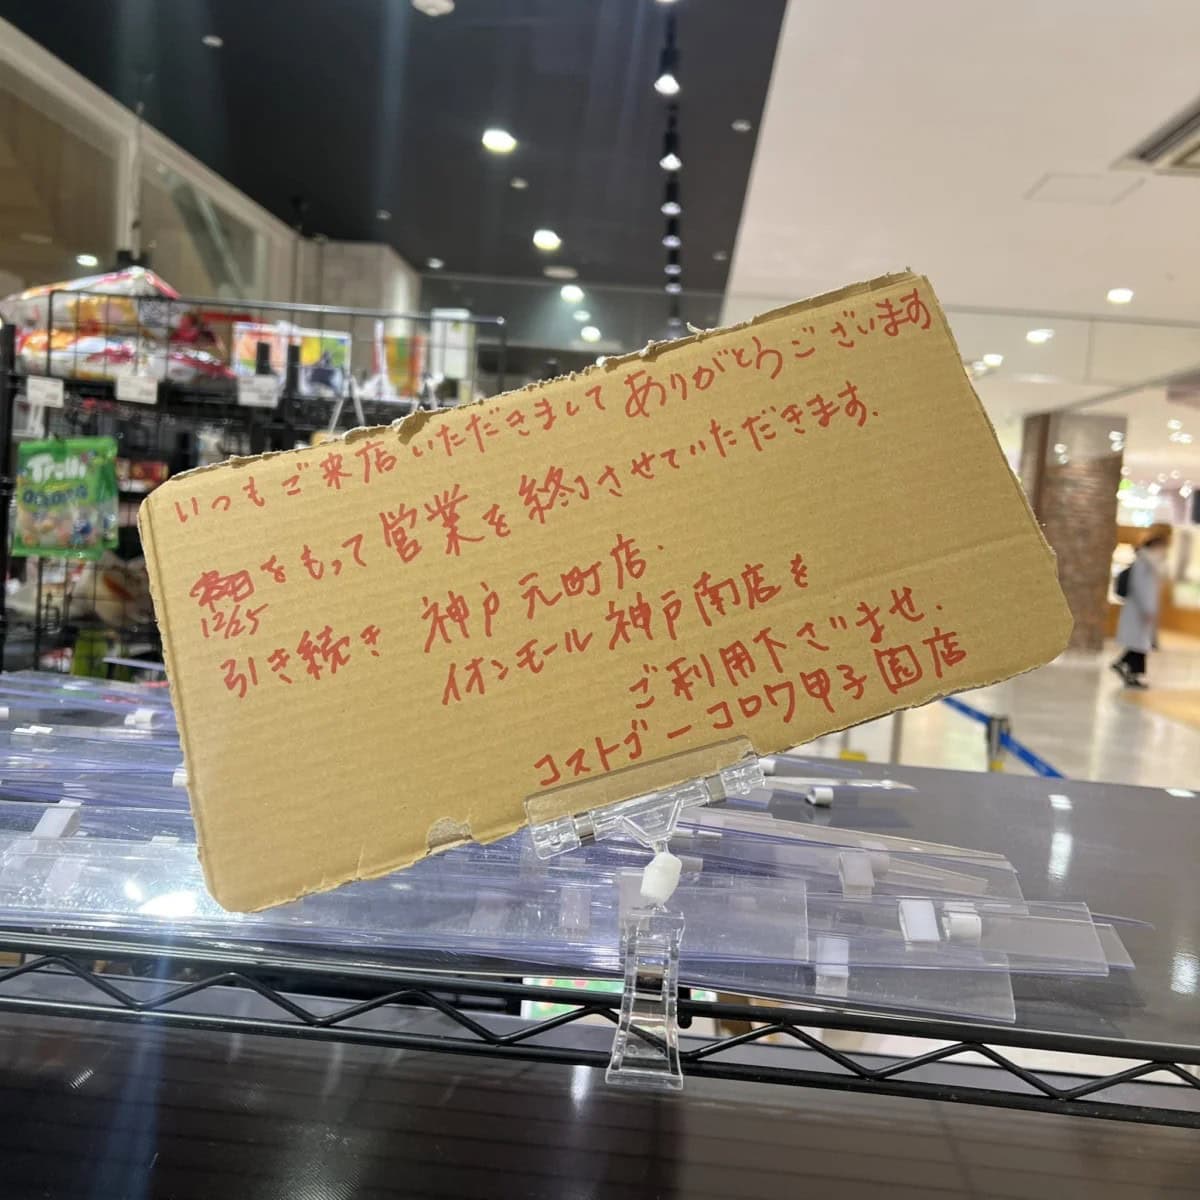 いつもご来店いただきましてありがとうございます
12/25をもって営業を終了させていただきます.
引き続き 神戸元町店.
イオンモール神戸南店を
ご利用下さいませ.
コストゴーコロワ甲子園店
Trolli